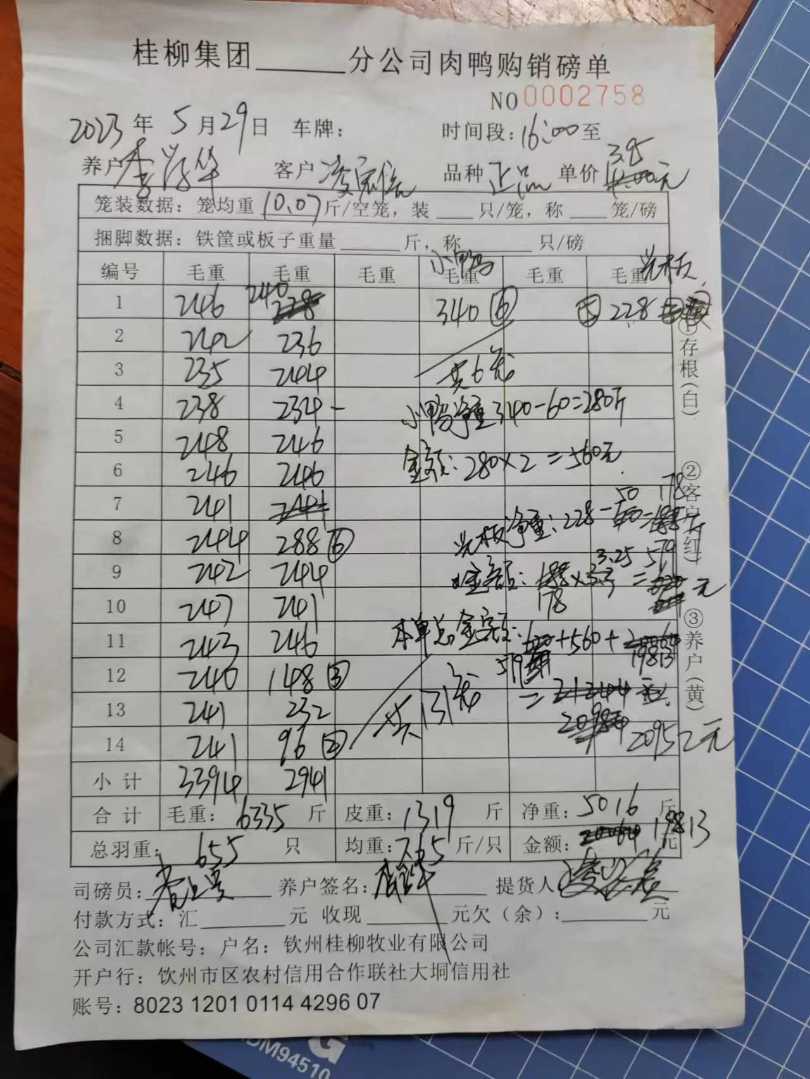 桂柳集团______分公司肉鸭购销磅单
NO 0002758
2023 年 5 月 29 日 车牌: 时间段: 16:00 至
养户 李 华 客户 品种 正品 单价 3.95 元
笼装数据: 笼均重 10.07 斤/空笼, 装 ___ 只/笼, 称 ___ 笼/磅
捆脚数据: 铁筐或板子重量 ______ 斤, 称 ______ 只/磅
小鸭 光板
编号 毛重 毛重 毛重 毛重 毛重 毛重
1 246 240 340 ⑥ ⑤ 228
2 242 236
3 235 244 共6笼
4 238 234 小鸭净重 340-60=280斤
5 248 246
6 246 246 金额: 280×2=560元
7 241
8 244 288 ⑥ 光板净重: 228-50=178斤
9 242 244 金额: 178×3.25=579元
10 247 241
11 243 246 本单总金额: 579+560+19813
12 240 148 ③ 共131笼
13 241 232 =
14 241 96 ② 20952元
小计 3394 2941
合计 毛重: 6335 斤 皮重: 1319 斤 净重: 5016 斤
总羽重: 655 只 均重: 7.65 斤/只 金额: 19813 元
司磅员: 养户签名: 提货人
付款方式: 汇______元 收现______元欠(余): ______元
公司汇款帐号: 户名: 钦州桂柳牧业有限公司
开户行: 钦州市区农村信用合作联社大垌信用社
账号: 8023 1201 0114 4296 07
①存根(白) ②客户(红) ③养户(黄)
DM94510